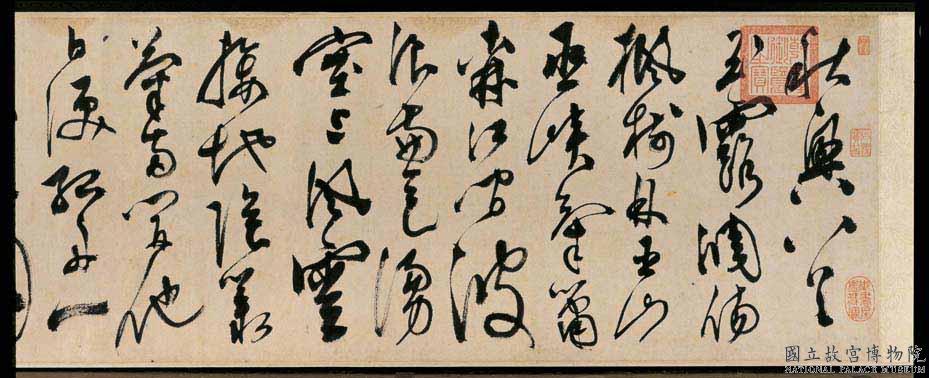 秋興八首
玉露凋傷
楓樹林巫山
巫峽氣蕭
森江間波
浪兼天湧
塞上風雲
接地陰叢
菊兩開他
日淚孤舟一
國立故宮博物院
NATIONAL PALACE MUSEUM